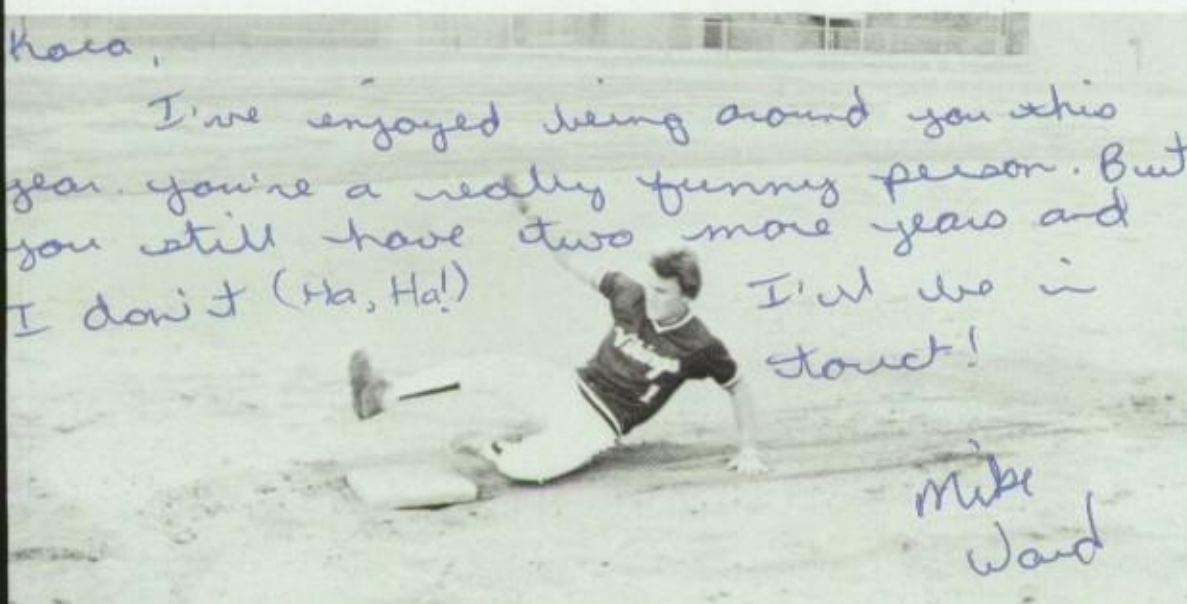 Kara,
I've enjoyed being around you this
year. you're a really funny person. But
you still have two more years and
I don't (Ha, Ha!)
I'll be in
touch!
Vikings
1
Mike
Ward